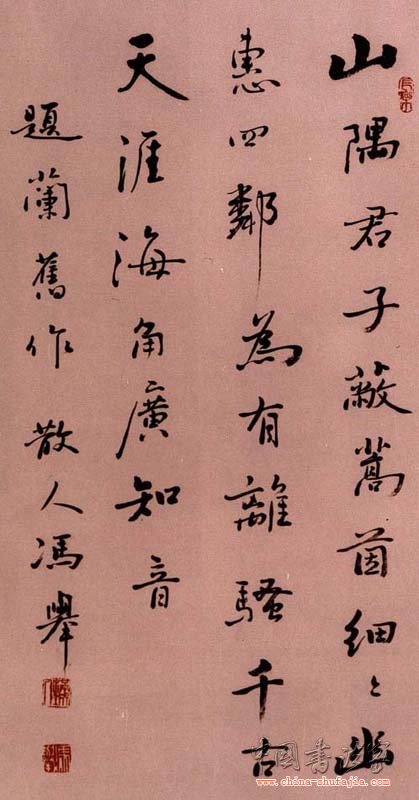 山隅君子蔽蒿茵細々幽
惠四鄰為有離騷千古
天涯海角廣知音
題蘭舊作 散人馮舉
中国書法家
www.china-shufajia.com